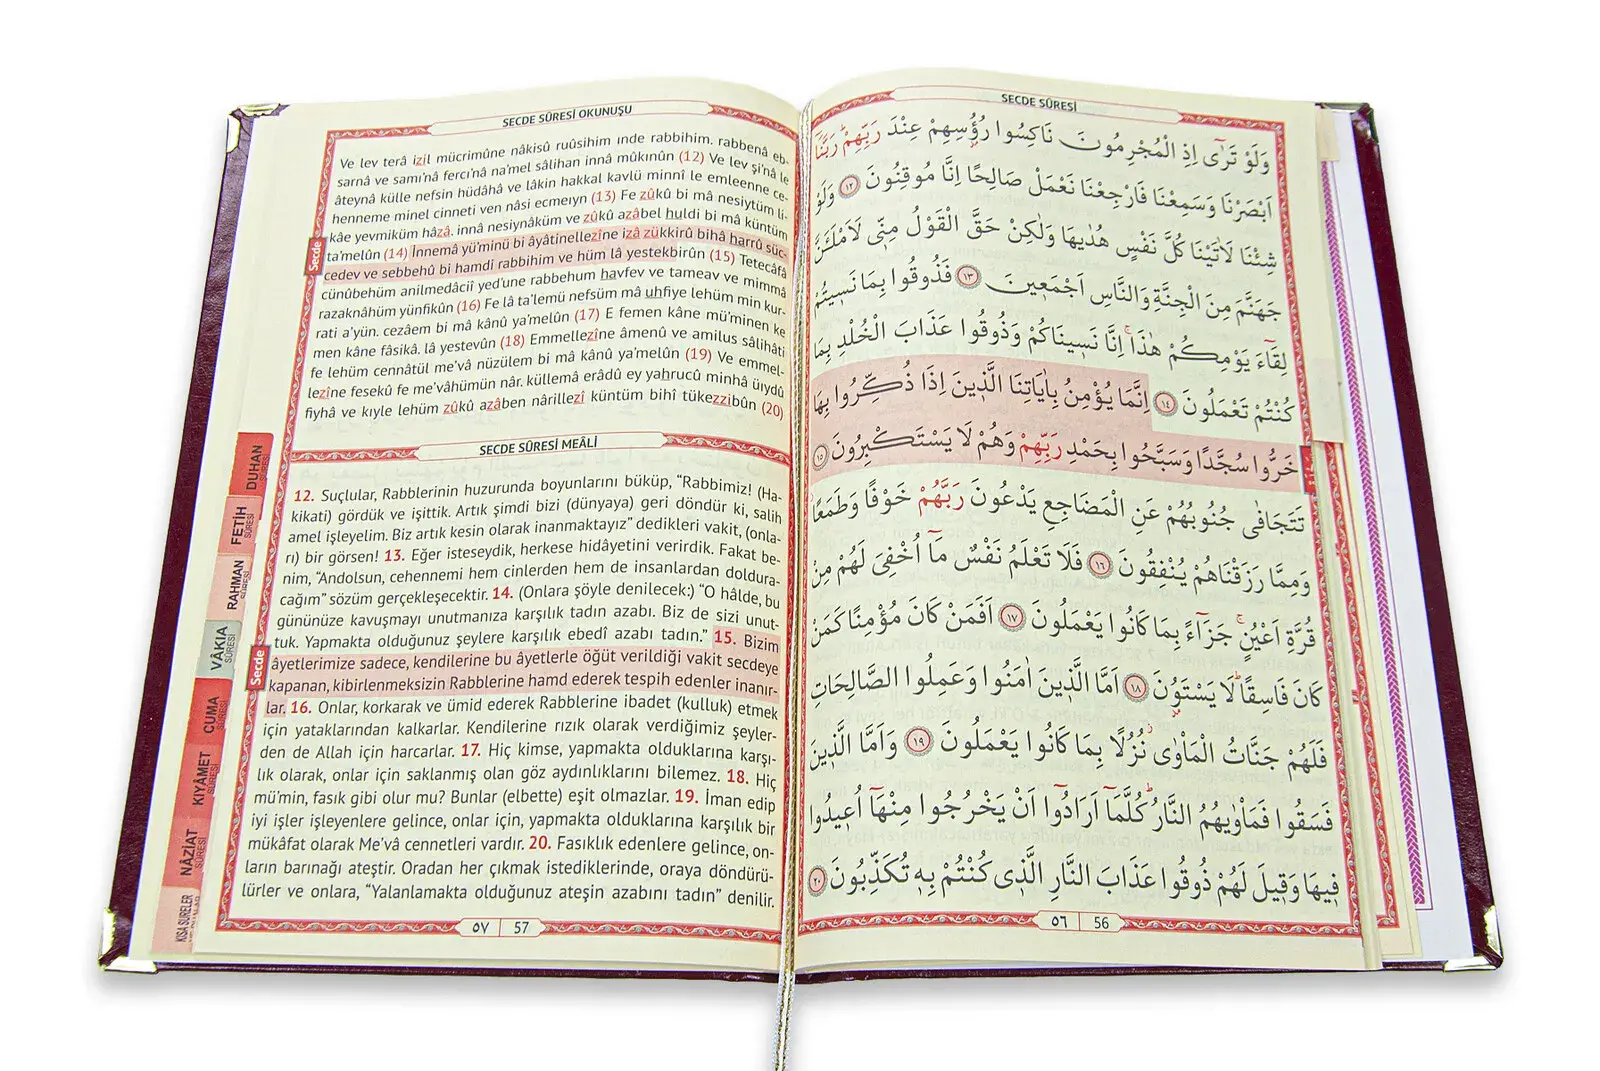 SECDE SÛRESİ
وَلَوْ تَرٰٓى اِذِ الْمُجْرِمُونَ نَاكِسُوا رُؤُ۫سِهِمْ عِنْدَ رَبِّهِمْۜ رَبَّنَٓا
اَبْصَرْنَا وَسَمِعْنَا فَارْجِعْنَا نَعْمَلْ صَالِحًا اِنَّا مُوقِنُونَ ﴿١٢﴾ وَلَوْ
شِئْنَا لَاٰتَيْنَا كُلَّ نَفْسٍ هُدٰيهَا وَلٰكِنْ حَقَّ الْقَوْلُ مِنّ۪ي لَاَمْلَـَٔنَّ
جَهَنَّمَ مِنَ الْجِنَّةِ وَالنَّاسِ اَجْمَع۪ينَ ﴿١٣﴾ فَذُوقُوا بِمَا نَس۪يتُمْ
لِقَٓاءَ يَوْمِكُمْ هٰذَاۚ اِنَّا نَس۪ينَاكُمْ وَذُوقُوا عَذَابَ الْخُلْدِ بِمَا
كُنْتُمْ تَعْمَلُونَ ﴿١٤﴾ اِنَّمَا يُؤْمِنُ بِاٰيَاتِنَا الَّذ۪ينَ اِذَا ذُكِّرُوا بِهَا
خَرُّوا سُجَّدًا وَسَبَّحُوا بِحَمْدِ رَبِّهِمْ وَهُمْ لَا يَسْتَكْبِرُونَ ﴿١٥﴾
تَتَجَافٰى جُنُوبُهُمْ عَنِ الْمَضَاجِعِ يَدْعُونَ رَبَّهُمْ خَوْفًا وَطَمَعًاۘ
وَمِمَّا رَزَقْنَاهُمْ يُنْفِقُونَ ﴿١٦﴾ فَلَا تَعْلَمُ نَفْسٌ مَٓا اُخْفِيَ لَهُمْ مِنْ
قُرَّةِ اَعْيُنٍۚ جَزَٓاءً بِمَا كَانُوا يَعْمَلُونَ ﴿١٧﴾ اَفَمَنْ كَانَ مُؤْمِنًا كَمَنْ
كَانَ فَاسِقًاۜ لَا يَسْتَوُ۫نَ ﴿١٨﴾ اَمَّا الَّذ۪ينَ اٰمَنُوا وَعَمِلُوا الصَّالِحَاتِ
فَلَهُمْ جَنَّاتُ الْمَأْوٰىۘ نُزُلًا بِمَا كَانُوا يَعْمَلُونَ ﴿١٩﴾ وَاَمَّا الَّذ۪ينَ
فَسَقُوا فَمَأْوٰيهُمُ النَّارُۜ كُلَّمَٓا اَرَادُٓوا اَنْ يَخْرُجُوا مِنْهَٓا اُع۪يدُوا
ف۪يهَا وَق۪يلَ لَهُمْ ذُوقُوا عَذَابَ النَّارِ الَّذ۪ي كُنْتُمْ بِه۪ تُكَذِّبُونَ ﴿٢٠﴾
٥٦ 56
SECDE SÛRESİ OKUNUŞU
Ve lev terâ izil mücrimûne nâkisû ruûsihim ınde rabbihim. rabbenâ eb-
sarnâ ve samı'nâ fercı'nâ na'mel sâlihan innâ mûkınûn (12) Ve lev şi'nâ le
âteynâ külle nefsin hüdâhâ ve lâkin hakkal kavlü minnî le emleenne ce-
henneme minel cinneti ven nâsi ecmeıyn (13) Fe zûkû bi mâ nesiytüm li-
kâe yevmiküm hâzâ. innâ nesiynâküm ve zûkû azâbel huldi bi mâ küntüm
ta'melûn (14) İnnemâ yü'minü bi âyâtinellezîne izâ zükkirû bihâ harrû süc-
cedev ve sebbehû bi hamdi rabbihim ve hüm lâ yestekbirûn (15) Tetecâfâ
cünûbehüm anilmedâciî yed'une rabbehum havfev ve tameav ve mimmâ
razaknâhüm yünfikûn (16) Fe lâ ta'lemü nefsüm mâ uhfiye lehüm min kur-
rati a'yün. cezâem bi mâ kânû ya'melûn (17) E femen kâne mü'minen ke
men kâne fâsikâ. lâ yestevûn (18) Emmellezîne âmenû ve amilus sâlihâti
fe lehüm cennâtül me'vâ nüzülem bi mâ kânû ya'melûn (19) Ve emmel-
lezîne fesekû fe me'vâhümün nâr. küllemâ erâdû ey yahrucû minhâ üıydû
fiyhâ ve kıyle lehüm zûkû azâben nârillezî küntüm bihî tükezzibûn (20)
Secde
SECDE SÛRESİ MEÂLİ
12. Suçlular, Rabblerinin huzurunda boyunlarını büküp, “Rabbimiz! (Ha-
kikati) gördük ve işittik. Artık şimdi bizi (dünyaya) geri döndür ki, salih
amel işleyelim. Biz artık kesin olarak inanmaktayız” dedikleri vakit, (onla-
rı) bir görsen! 13. Eğer isteseydik, herkese hidâyetini verirdik. Fakat be-
nim, “Andolsun, cehennemi hem cinlerden hem de insanlardan doldura-
cağım” sözüm gerçekleşecektir. 14. (Onlara şöyle denilecek:) “O hâlde, bu
gününüze kavuşmayı unutmanıza karşılık tadın azabı. Biz de sizi unut-
tuk. Yapmakta olduğunuz şeylere karşılık ebedî azabı tadın.” 15. Bizim
âyetlerimize sadece, kendilerine bu âyetlerle öğüt verildiği vakit secdeye
kapanan, kibirlenmeksizin Rabblerine hamd ederek tespih edenler inanır-
lar. 16. Onlar, korkarak ve ümid ederek Rabblerine ibadet (kulluk) etmek
için yataklarından kalkarlar. Kendilerine rızık olarak verdiğimiz şeyler-
den de Allah için harcarlar. 17. Hiç kimse, yapmakta olduklarına karşı-
lık olarak, onlar için saklanmış olan göz aydınlıklarını bilemez. 18. Hiç
mü'min, fasık gibi olur mu? Bunlar (elbette) eşit olmazlar. 19. İman edip
iyi işler işleyenlere gelince, onlar için, yapmakta olduklarına karşılık bir
mükâfat olarak Me'vâ cennetleri vardır. 20. Fasıklık edenlere gelince, on-
ların barınağı ateştir. Oradan her çıkmak istediklerinde, oraya döndürü-
lürler ve onlara, “Yalanlamakta olduğunuz ateşin azabını tadın” denilir.
Secde
٥٧ 57
DUHAN
SÛRESİ
FETİH
SÛRESİ
RAHMAN
SÛRESİ
VÂKIA
SÛRESİ
CUMA
SÛRESİ
KIYÂMET
SÛRESİ
NÂZİAT
SÛRESİ
KISA SÛRELER